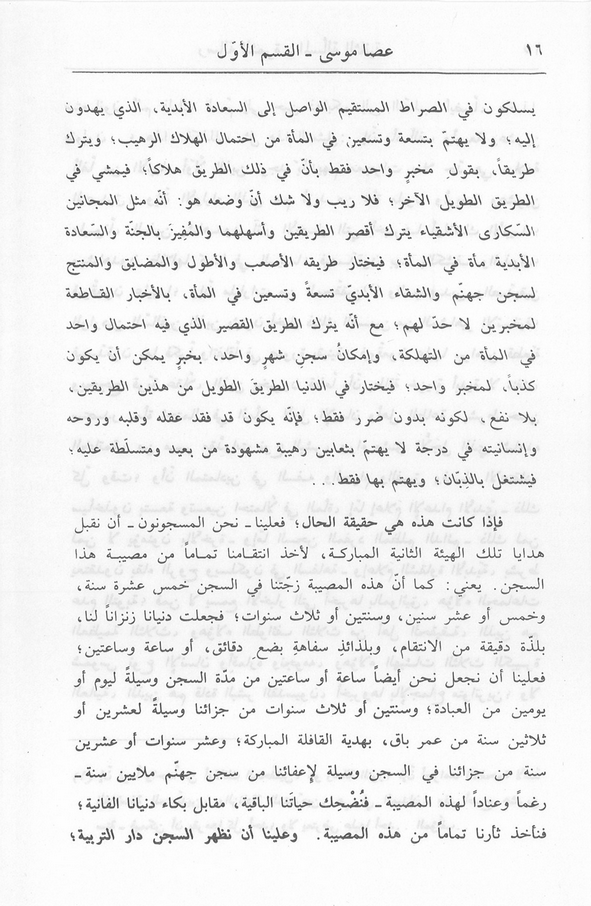 ١٦
عصا موسى - القسم الأوّل
يسلكون في الصراط المستقيم الواصل إلى السعادة الأبدية، الذي يهدون
إليه؛ ولا يهتمّ بتسعة وتسعين في المأة من احتمال الهلاك الرهيب؛ ويترك
طريقاً، بقول مخبرٍ واحد فقط بأنّ في ذلك الطريق هلاكاً؛ فيمشي في
الطريق الطويل الآخر؛ فلا ريب ولا شك أنّ وضعه هو: أنّه مثل المجانين
السّكارى الأشقياء يترك أقصر الطريقين وأسهلهما والمُفِيزَ بالجنّة والسّعادة
الأبدية مأة في المأة؛ فيختار طريقه الأصعب والأطول والمضايق والمنتج
لسجن جهنّم والشقاء الأبديّ تسعةً وتسعين في المأة، بالأخبار القاطعة
لمخبرين لا حدّ لهم؛ مع أنّه يترك الطريق القصير الذي فيه احتمال واحد
في المأة من التهلكة، وإمكانُ سجنِ شهرٍ واحد، بخبرٍ يمكن أن يكون
كذباً، لمخبر واحد؛ فيختار في الدنيا الطريق الطويل من هذين الطريقين،
بلا نفع، لكونه بدون ضرر فقط؛ فإنّه يكون قد فقد عقله وقلبه وروحه
وإنسانيته في درجة لا يهتمّ بثعابين رهيبة مشهودة من بعيد ومتسلّطة عليه؛
فيشتغل بالذِبّان؛ ويهتم بها فقط...
فإذا كانت هذه هي حقيقة الحال؛ فعلينا - نحن المسجونون - أن نقبل
هدايا تلك الهيئة الثانية المباركة، لأخذ انتقامنا تماماً من مصيبة هذا
السجن. يعني: كما أنّ هذه المصيبة زجّتنا في السجن خمس عشرة سنة،
وخمس أو عشر سنين، وسنتين أو ثلاث سنوات؛ فجعلت دنيانا زنزاناً لنا،
بلذّة دقيقة من الانتقام، وبلذائذِ سفاهةِ بضع دقائق، أو ساعة وساعتين؛
فعلينا أن نجعل نحن أيضاً ساعة أو ساعتين من مدّة السجن وسيلةً ليوم أو
يومين من العبادة؛ وسنتين أو ثلاث سنوات من جزائنا وسيلةً لعشرين أو
ثلاثين سنة من عمر باق، بهدية القافلة المباركة؛ وعشر سنوات أو عشرين
سنة من جزائنا في السجن وسيلة لإعفائنا من سجن جهنّم ملايين سنة -
رغماً وعناداً لهذه المصيبة - فنُضْحِك حياتَنا الباقية، مقابل بكاء دنيانا الفانية؛
فنأخذ ثأرنا تماماً من هذه المصيبة. وعلينا أن نظهر السجن دار التربية؛